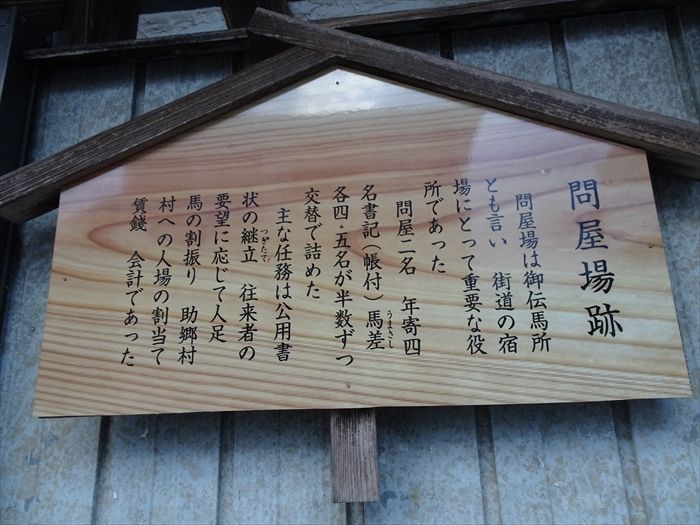 問屋場跡
問屋場は御伝馬所
とも言い 街道の宿
場にとって重要な役
所であった
問屋二名 年寄四
名書記(帳付)馬差
うまさし
各四・五名が半数ずつ
交替で詰めた
主な任務は公用書
状の継立 往来者の
つぎたて
要望に応じて人足
馬の割振り 助郷村
村への人場の割当て
賃銭 会計であった